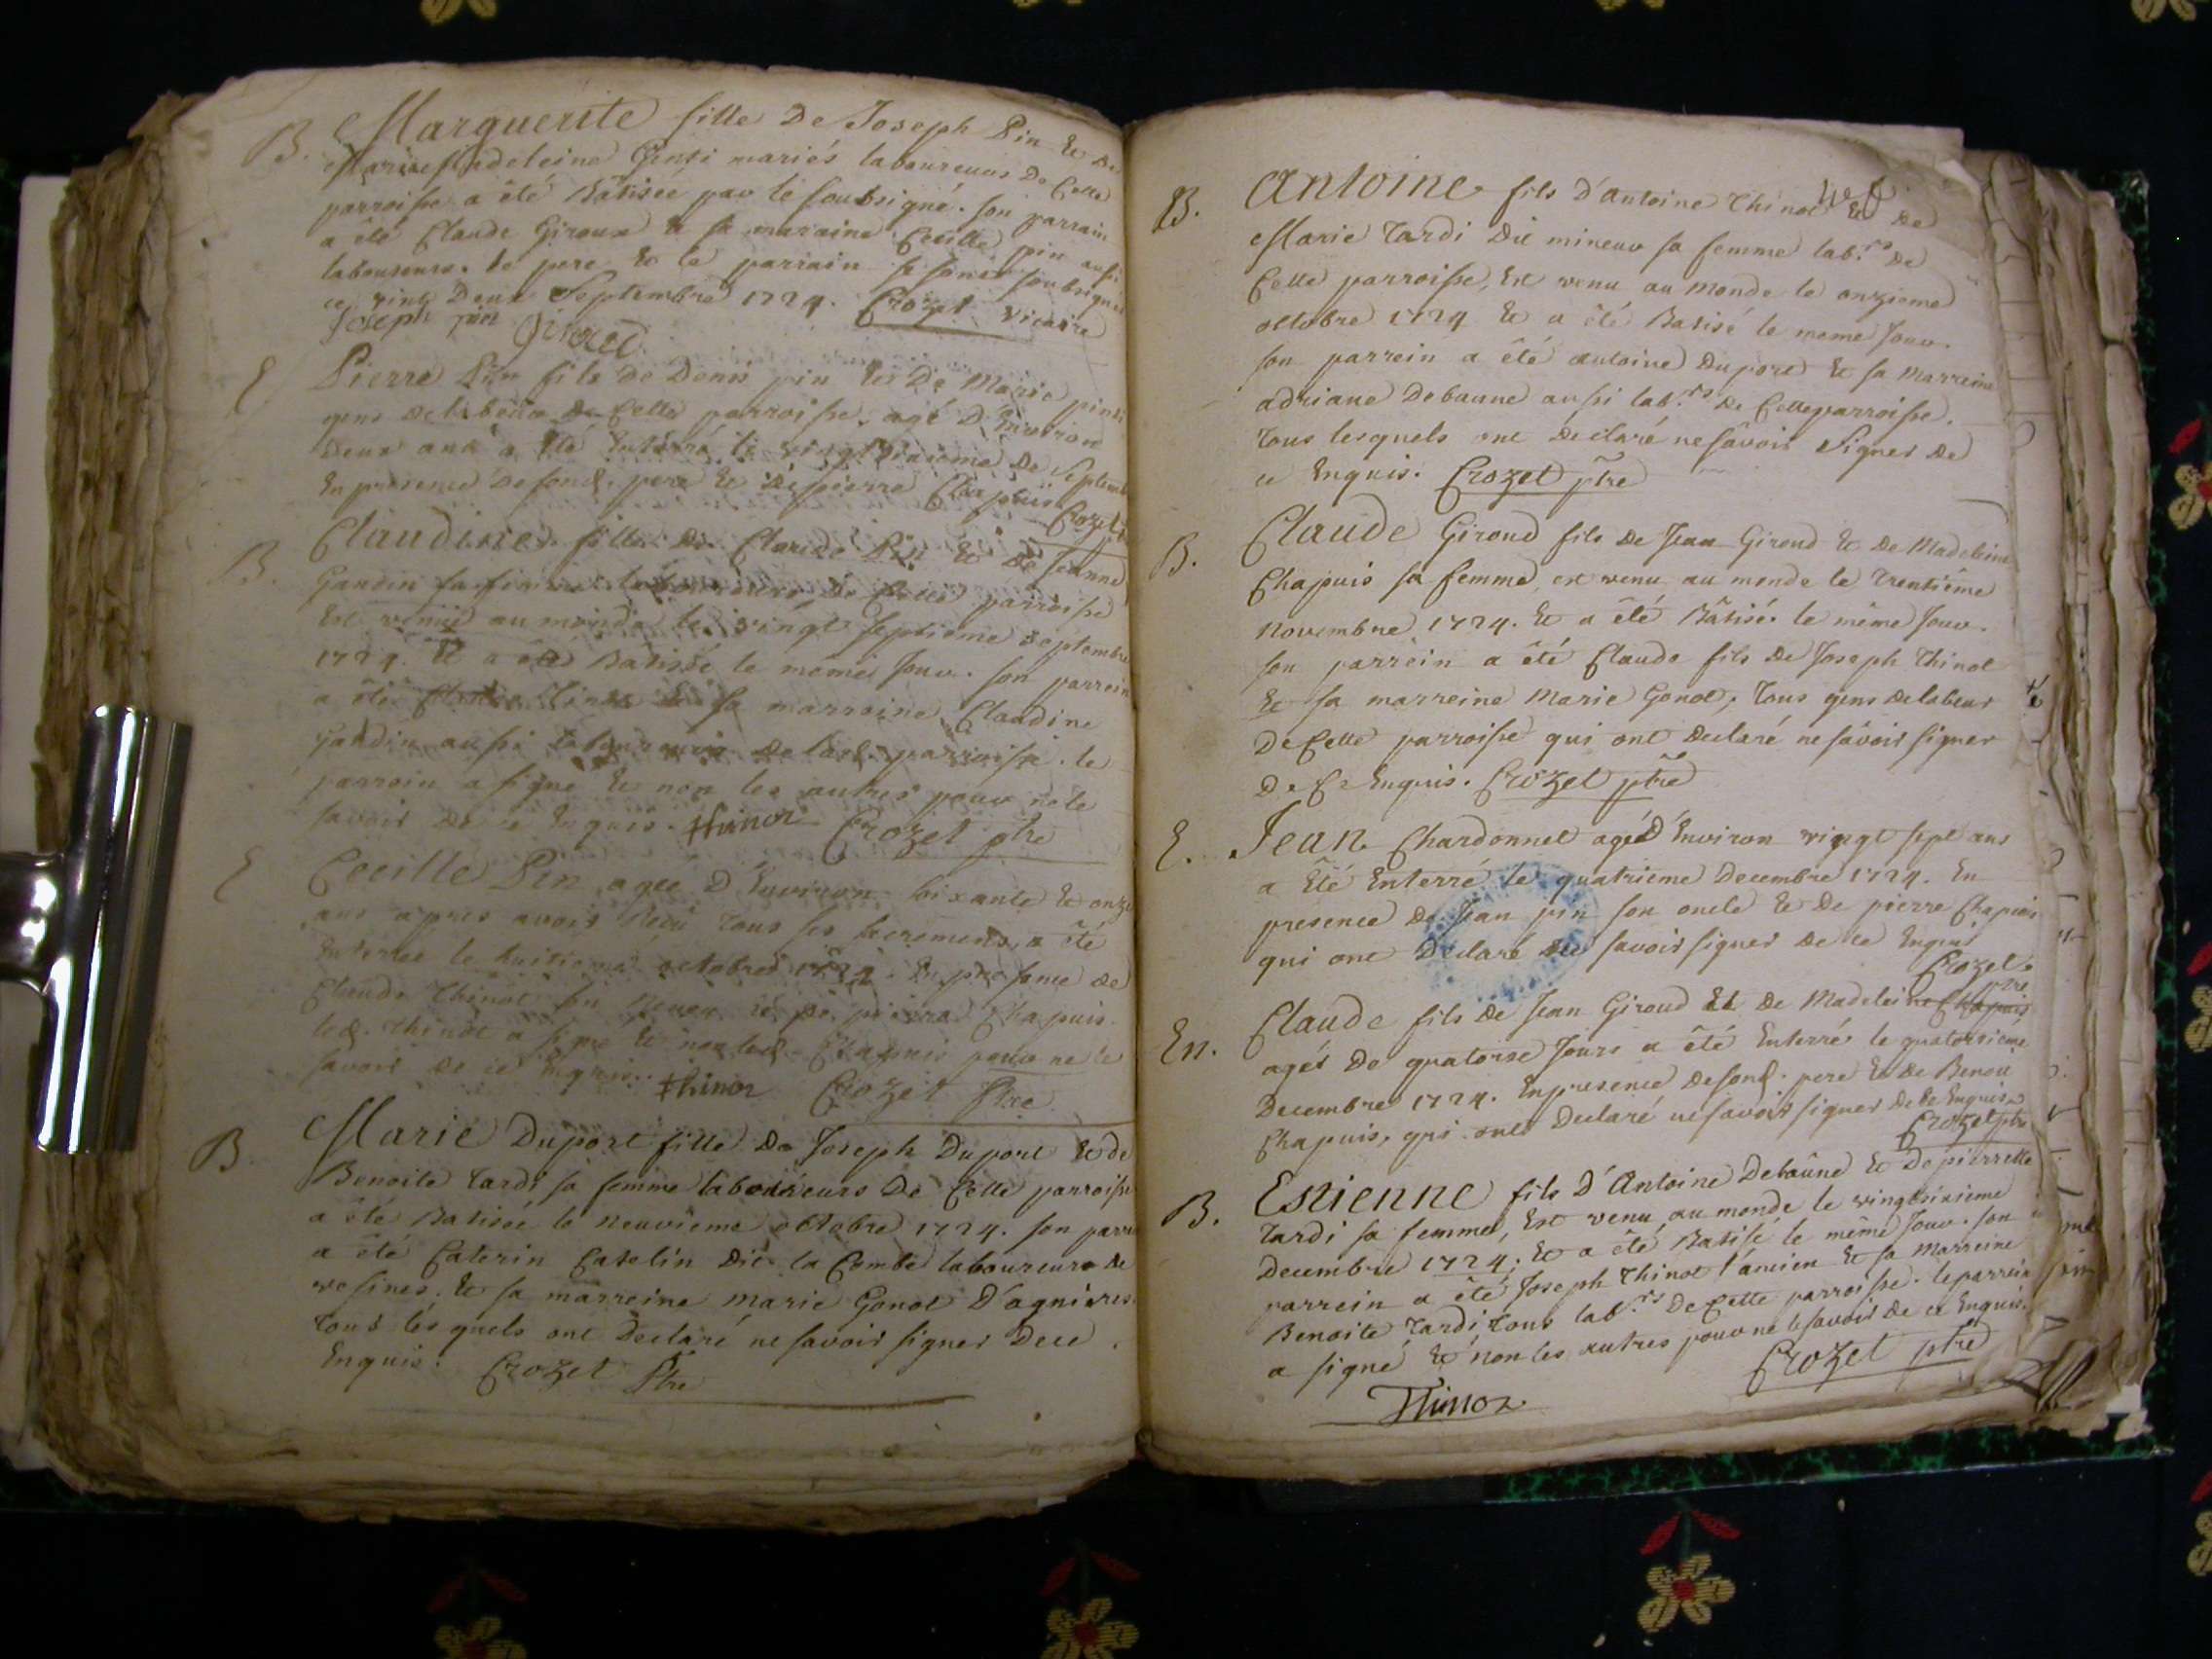 B. Marguerite fille De Joseph Pin Et De
Marie Madeleine mariés laboureurs De Cette
parroisse a été Bâtisée par le soubsigné. son parrain
a été Claude Giroux & sa maraine Cecille pin aussi
laboureurs. le pere & le parrain se sont soubsignés
ce vint Deux Septembre 1724. Crozet vicaire
Joseph pin Giroud
E Pierre Pin fils de Denis pin Et De Marie
gens de labeur De Cette parroisse, agé D'Environ
Deux ans a été Enterré le De Septembre
En presence De sond. pere Et de pierre Chapuis
Crozet
B. Claudine fille De Claude Pin Et De Jeanne
Gandin sa femme laboureurs De Cette parroisse
Est venue au monde le vingt septieme septembre
1724. Et a été Batisée le meme Jour. son parrein
a été sa marraine Claudine
Gandin aussi laboureurs de lad. parroisse. le
parrein a signé Et non les autres pour ne le
savoir De ce Enquis. Thinot Crozet ptre
E Cecille Pin agée D'Environ soixante Et onze
ans apres avoir Reçu Tous ses sacremens, a été
Enterrée le huitieme octobre 1724. En presence de
Claude Thinot son Et de pierre Chapuis.
led. Thinot a signé Et non led. Chapuis pour ne le
savoir de ce Enquis. Thinot Crozet Ptre
B Marie Duport fille De Joseph Duport Et de
Benoite Tardi sa femme laboureurs De Cette parroisse
a été Batisée le Neuvieme octobre 1724. son parrein
a été Caterin Catelin Dit la Combe laboureur De
vesines. Et sa marreine Marie Gonot D'agnieres.
Tous lesquels ont Declaré ne savoir signer De ce
Enquis. Crozet Ptre
B. Antoine fils d'Antoine Thinot Et De
Marie Tardi Dit mineur sa femme lab.rs De
Cette parroisse, Est venu au Monde le onzieme
octobre 1724 Et a été Batisé le meme Jour.
son parrein a été antoine Duport Et sa Marreine
adriane Debaune aussi lab.rs De Cette parroisse.
Tous lesquels ont Declaré ne savoir Signer De
ce Enquis. Crozet ptre
B. Claude Giroud fils De Jean Giroud Et De Madeleine
Chapuis sa femme, est venu au monde le Trentième
Novembre 1724. Et a été Bâtisé le même Jour.
son parrein a été Claude fils De Joseph Thinot
Et sa marreine Marie Gonot, Tous gens De labeur
De Cette parroisse qui ont Declaré ne savoir signer
De Ce Enquis. Crozet ptre
E. Jean Chardonnet agé d'Environ vingt sept ans
a Eté Enterré le quatrieme Decembre 1724. En
presence De Jean pin son oncle Et De pierre Chapuis
qui ont Declaré ne savoir signer De ce Enquis
Crozet ptre
En. Claude fils De Jean Giroud Et De Madeleine Chapuis
agé De quatorse Jours a été Enterré le quatorsieme
Decembre 1724. En presence De sond. pere Et De Benoit
Chapuis, qui ont Declaré ne savoir signer De Ce Enquis
Crozet ptre
B. Estienne fils D'Antoine Debaûne Et De pierrette
Tardi sa femme, Est venu au monde le vingtsixieme
Decembre 1724; Et a été Batisé le même Jour. son
parrein a été Joseph Thinot l'ancien Et sa Marreine
Benoite Tardi Tous lab.rs De Cette parroisse. le parrein
a signé Et non les autres pour ne le savoir De ce Enquis.
Thinot Crozet ptre